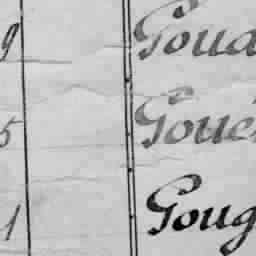 9 Goua
5 Goué
1 Goug